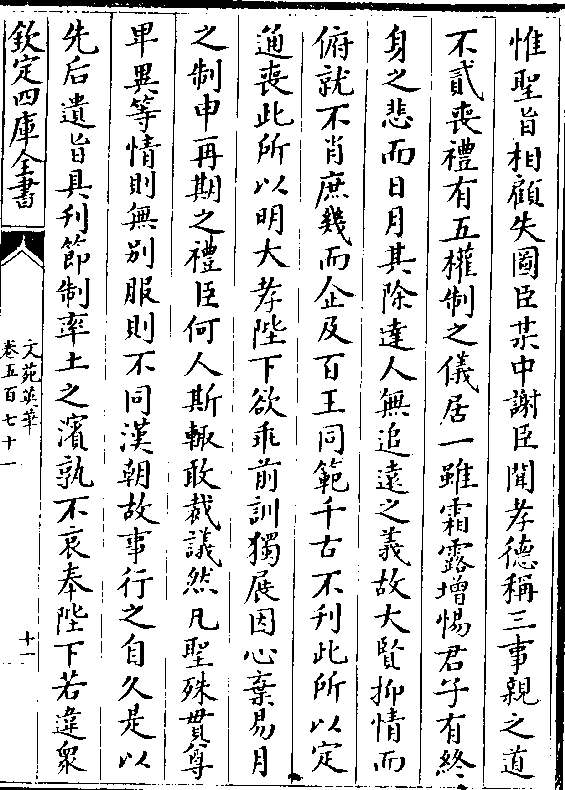 惟聖旨相顧失圖臣某中謝臣聞孝德稱三事親之道
不貳喪禮有五權制之儀居一雖霜露增惕君子有終
身之悲而日月其除達人無追遠之義故大賢抑情而
俯就不肖庶幾而企及百王同範千古不刊此所以定
通喪此所以明大孝陛下欲乖前訓獨展因心棄易月
之制申再期之禮臣何人斯輙敢裁議然凡聖殊貫尊
卑異等情則無別服則不同漢朝故事行之自久是以
先后遺旨具刊節制率土之濱孰不哀奉陛下若違衆
欽定四庫全書
文苑英華
卷五百七十一
十一